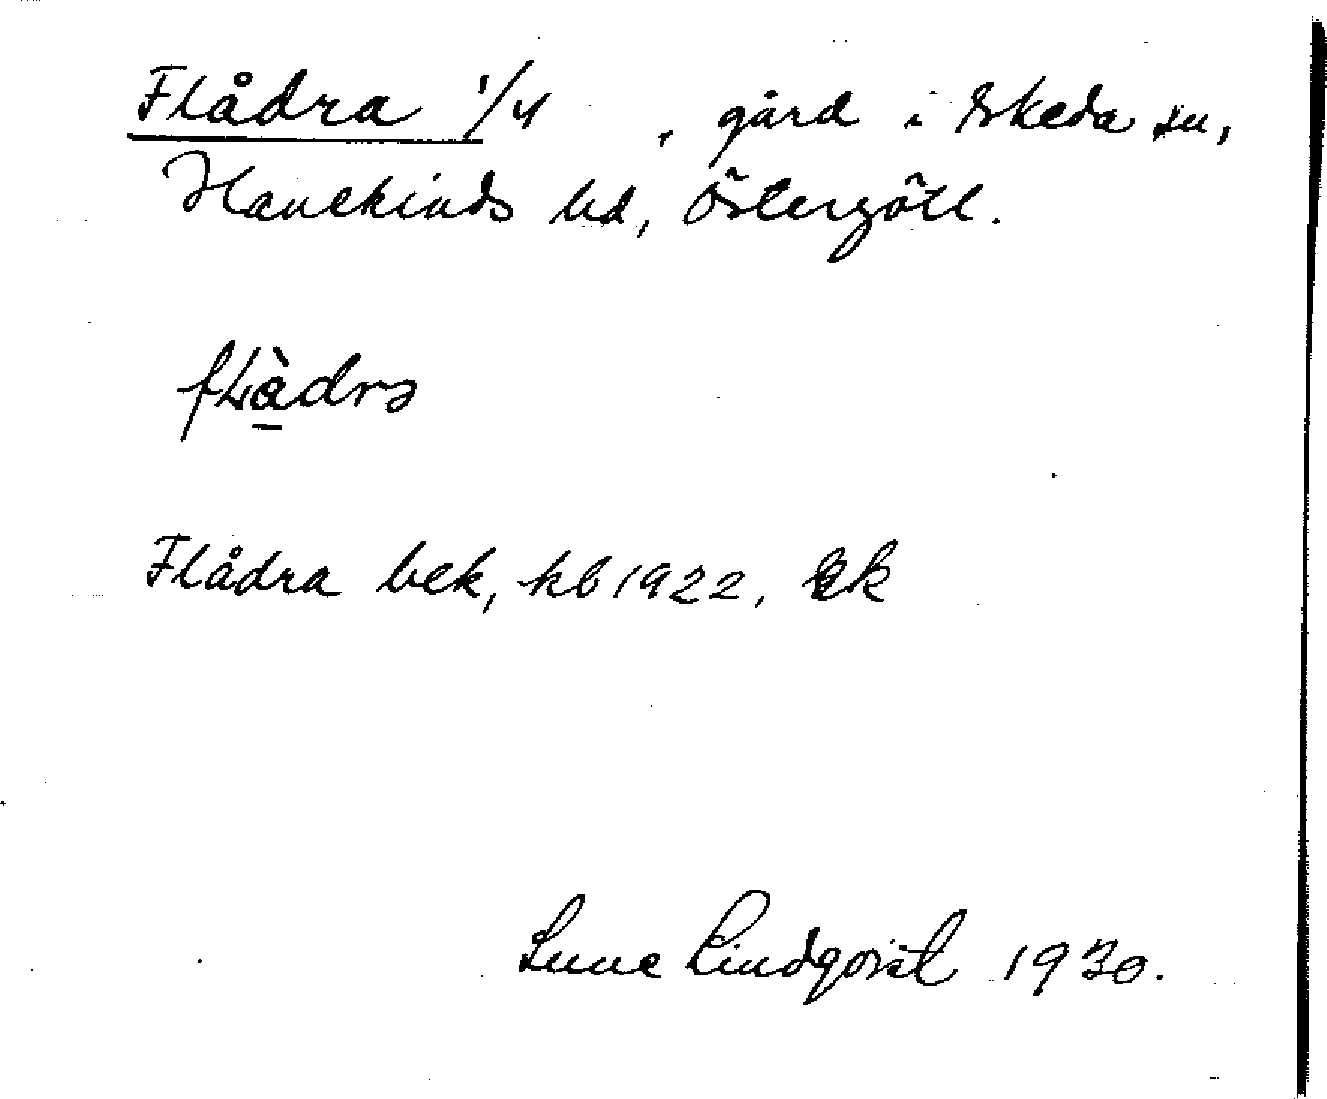 Flådra 1/4 , gård i Skeda sn,
Hanekinds hd, Östergötl.
fḷàdrə
Flådra bek, kb 1922, ek
Sune Lindqvist 1930.